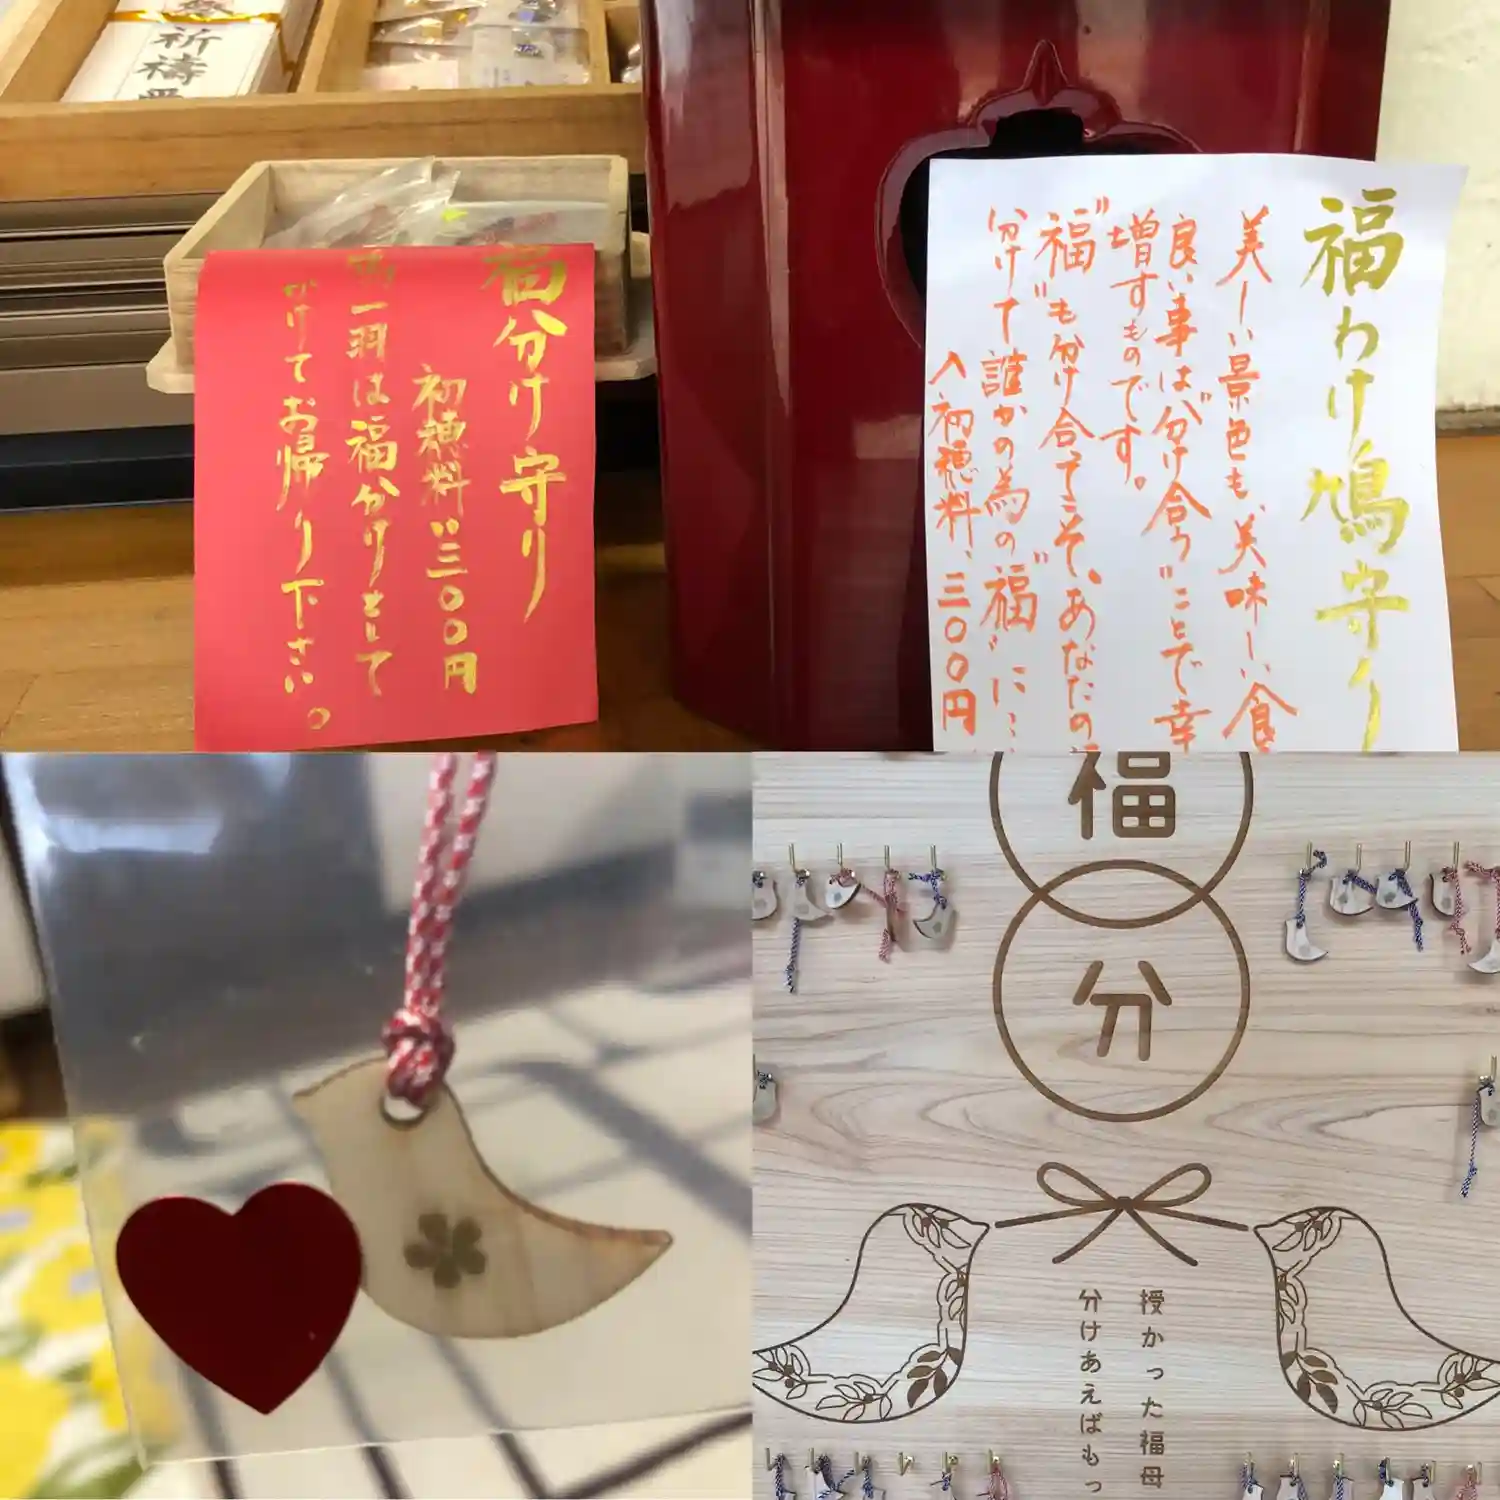 祈祷
福分け守り
初穂料〝三〇〇円
一羽は福分けとして
かけてお帰り下さい。
福わけ鳩守り
美しい景色も、美味しい食
良い事は〝分け合う〟ことで幸
増すものです。
〝福〟も分け合てこそ、あなたの
分けて誰かの為の〝福〟に…
初穂料、三〇〇円
福
分
授かった福母
分けあえばもっ